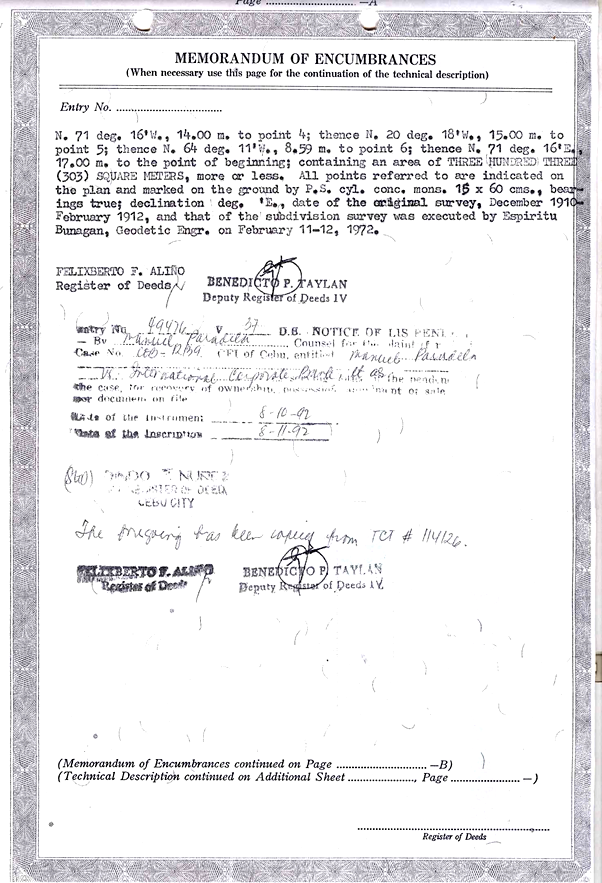 Page .............................. —A
MEMORANDUM OF ENCUMBRANCES
(When necessary use this page for the continuation of the technical description)
Entry No. ..................................
N. 71 deg. 16'W., 14.00 m. to point 4; thence N. 20 deg. 18'W., 15.00 m. to
point 5; thence N. 64 deg. 11'W., 8.59 m. to point 6; thence N. 71 deg. 16'E.,
17.00 m. to the point of beginning; containing an area of THREE HUNDRED THREE
(303) SQUARE METERS, more or less. All points referred to are indicated on
the plan and marked on the ground by P.S. cyl. conc. mons. 15 x 60 cms., bear-
ings true; declination deg. 'E., date of the original survey, December 1910-
February 1912, and that of the subdivision survey was executed by Espiritu
Bunagan, Geodetic Engr. on February 11-12, 1972.
FELIXBERTO F. ALIÑO
Register of Deeds
BENEDICTO P. TAYLAN
Deputy Register of Deeds IV
Entry No. V. 37 D.B. NOTICE OF LIS PEN
By Manuel Paradela Counsel for the
Case No. CFI of Cebu, entitled Manuel Paradela
Vs. International Corporate Bank et al the
the case, for recovery of ownership, or sale
document on file
Date of the Instrument 8-10-92
Date of the Inscription 8-11-92
(Sgd)
REGISTER OF DEEDS
CEBU CITY
The foregoing has been copied from TCT # 114126.
FELIXBERTO F. ALIÑO
Register of Deeds
BENEDICTO P. TAYLAN
Deputy Register of Deeds IV
(Memorandum of Encumbrances continued on Page .............................. —B)
(Technical Description continued on Additional Sheet ......................, Page ....................... —)
Register of Deeds